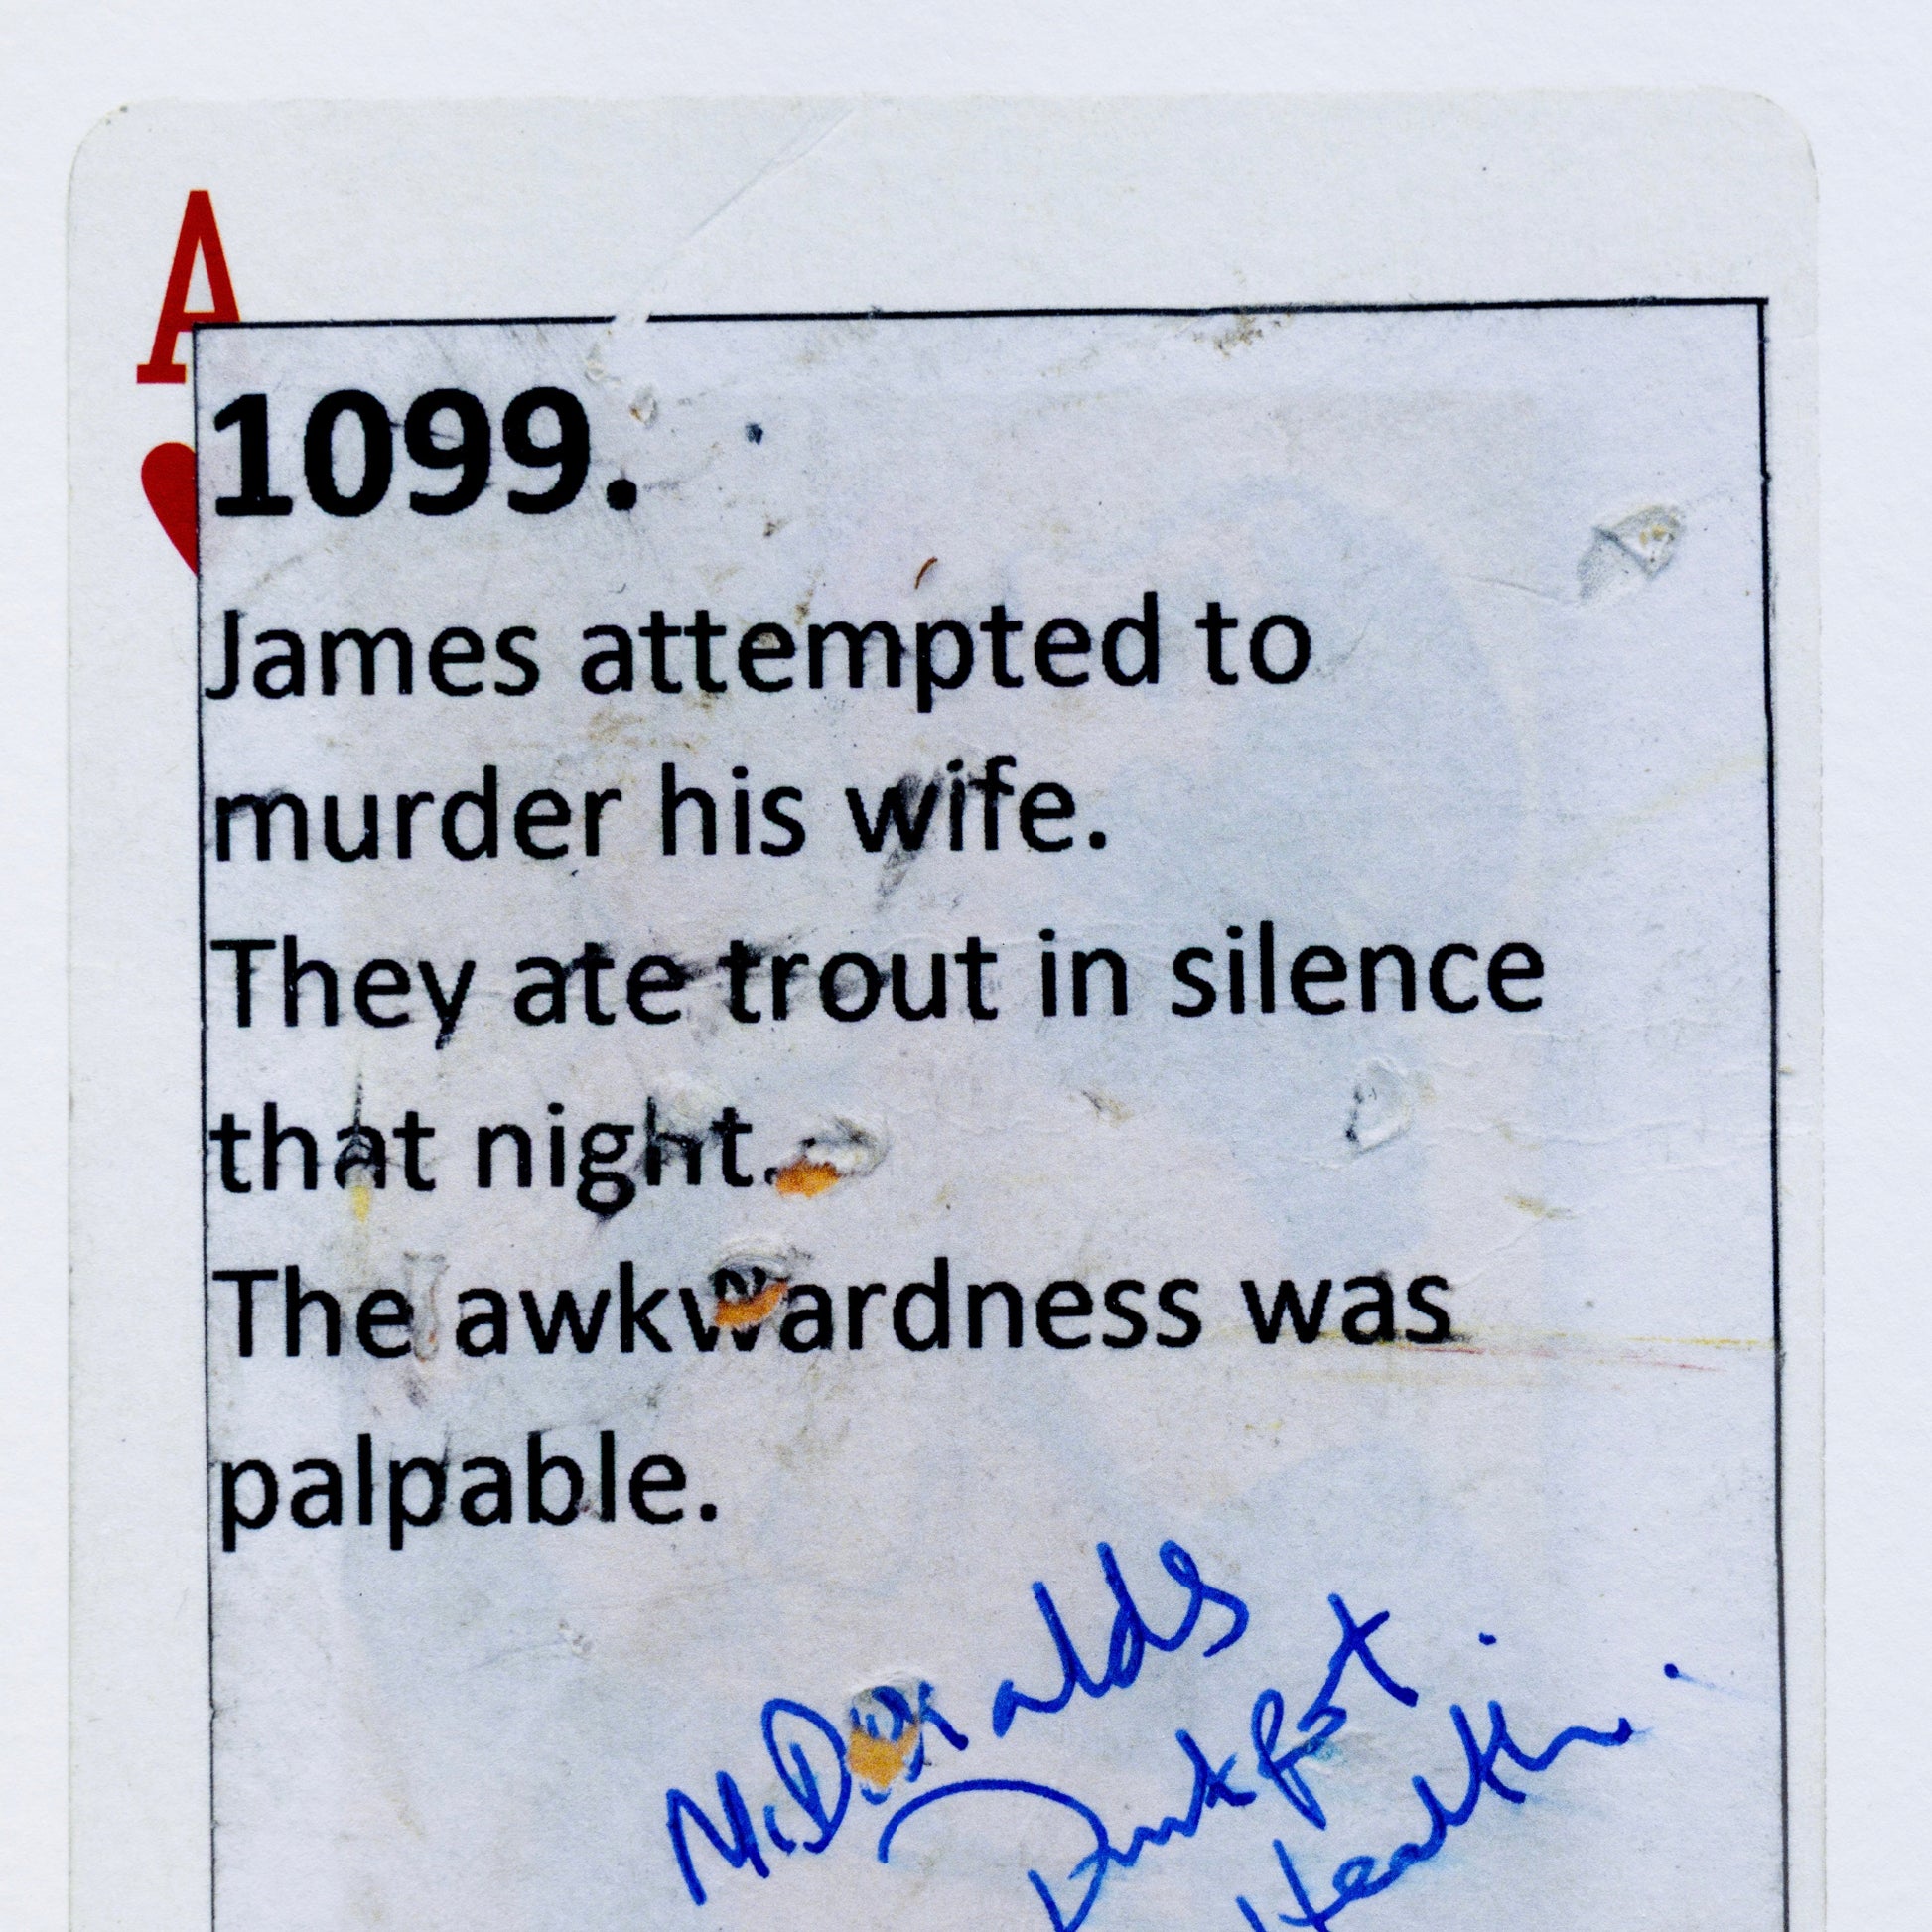 A
1099.
James attempted to
murder his wife.
They ate trout in silence
that night.
The awkwardness was
palpable.
McDonalds